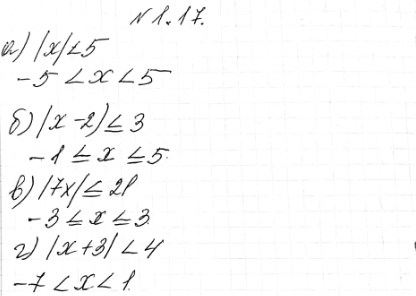 № 1.17.
а) |x| < 5
-5 < x < 5
б) |x - 2| ≤ 3
-1 ≤ x ≤ 5.
в) |7x| ≤ 21
-3 ≤ x ≤ 3.
г) |x + 3| < 4
-7 < x < 1.